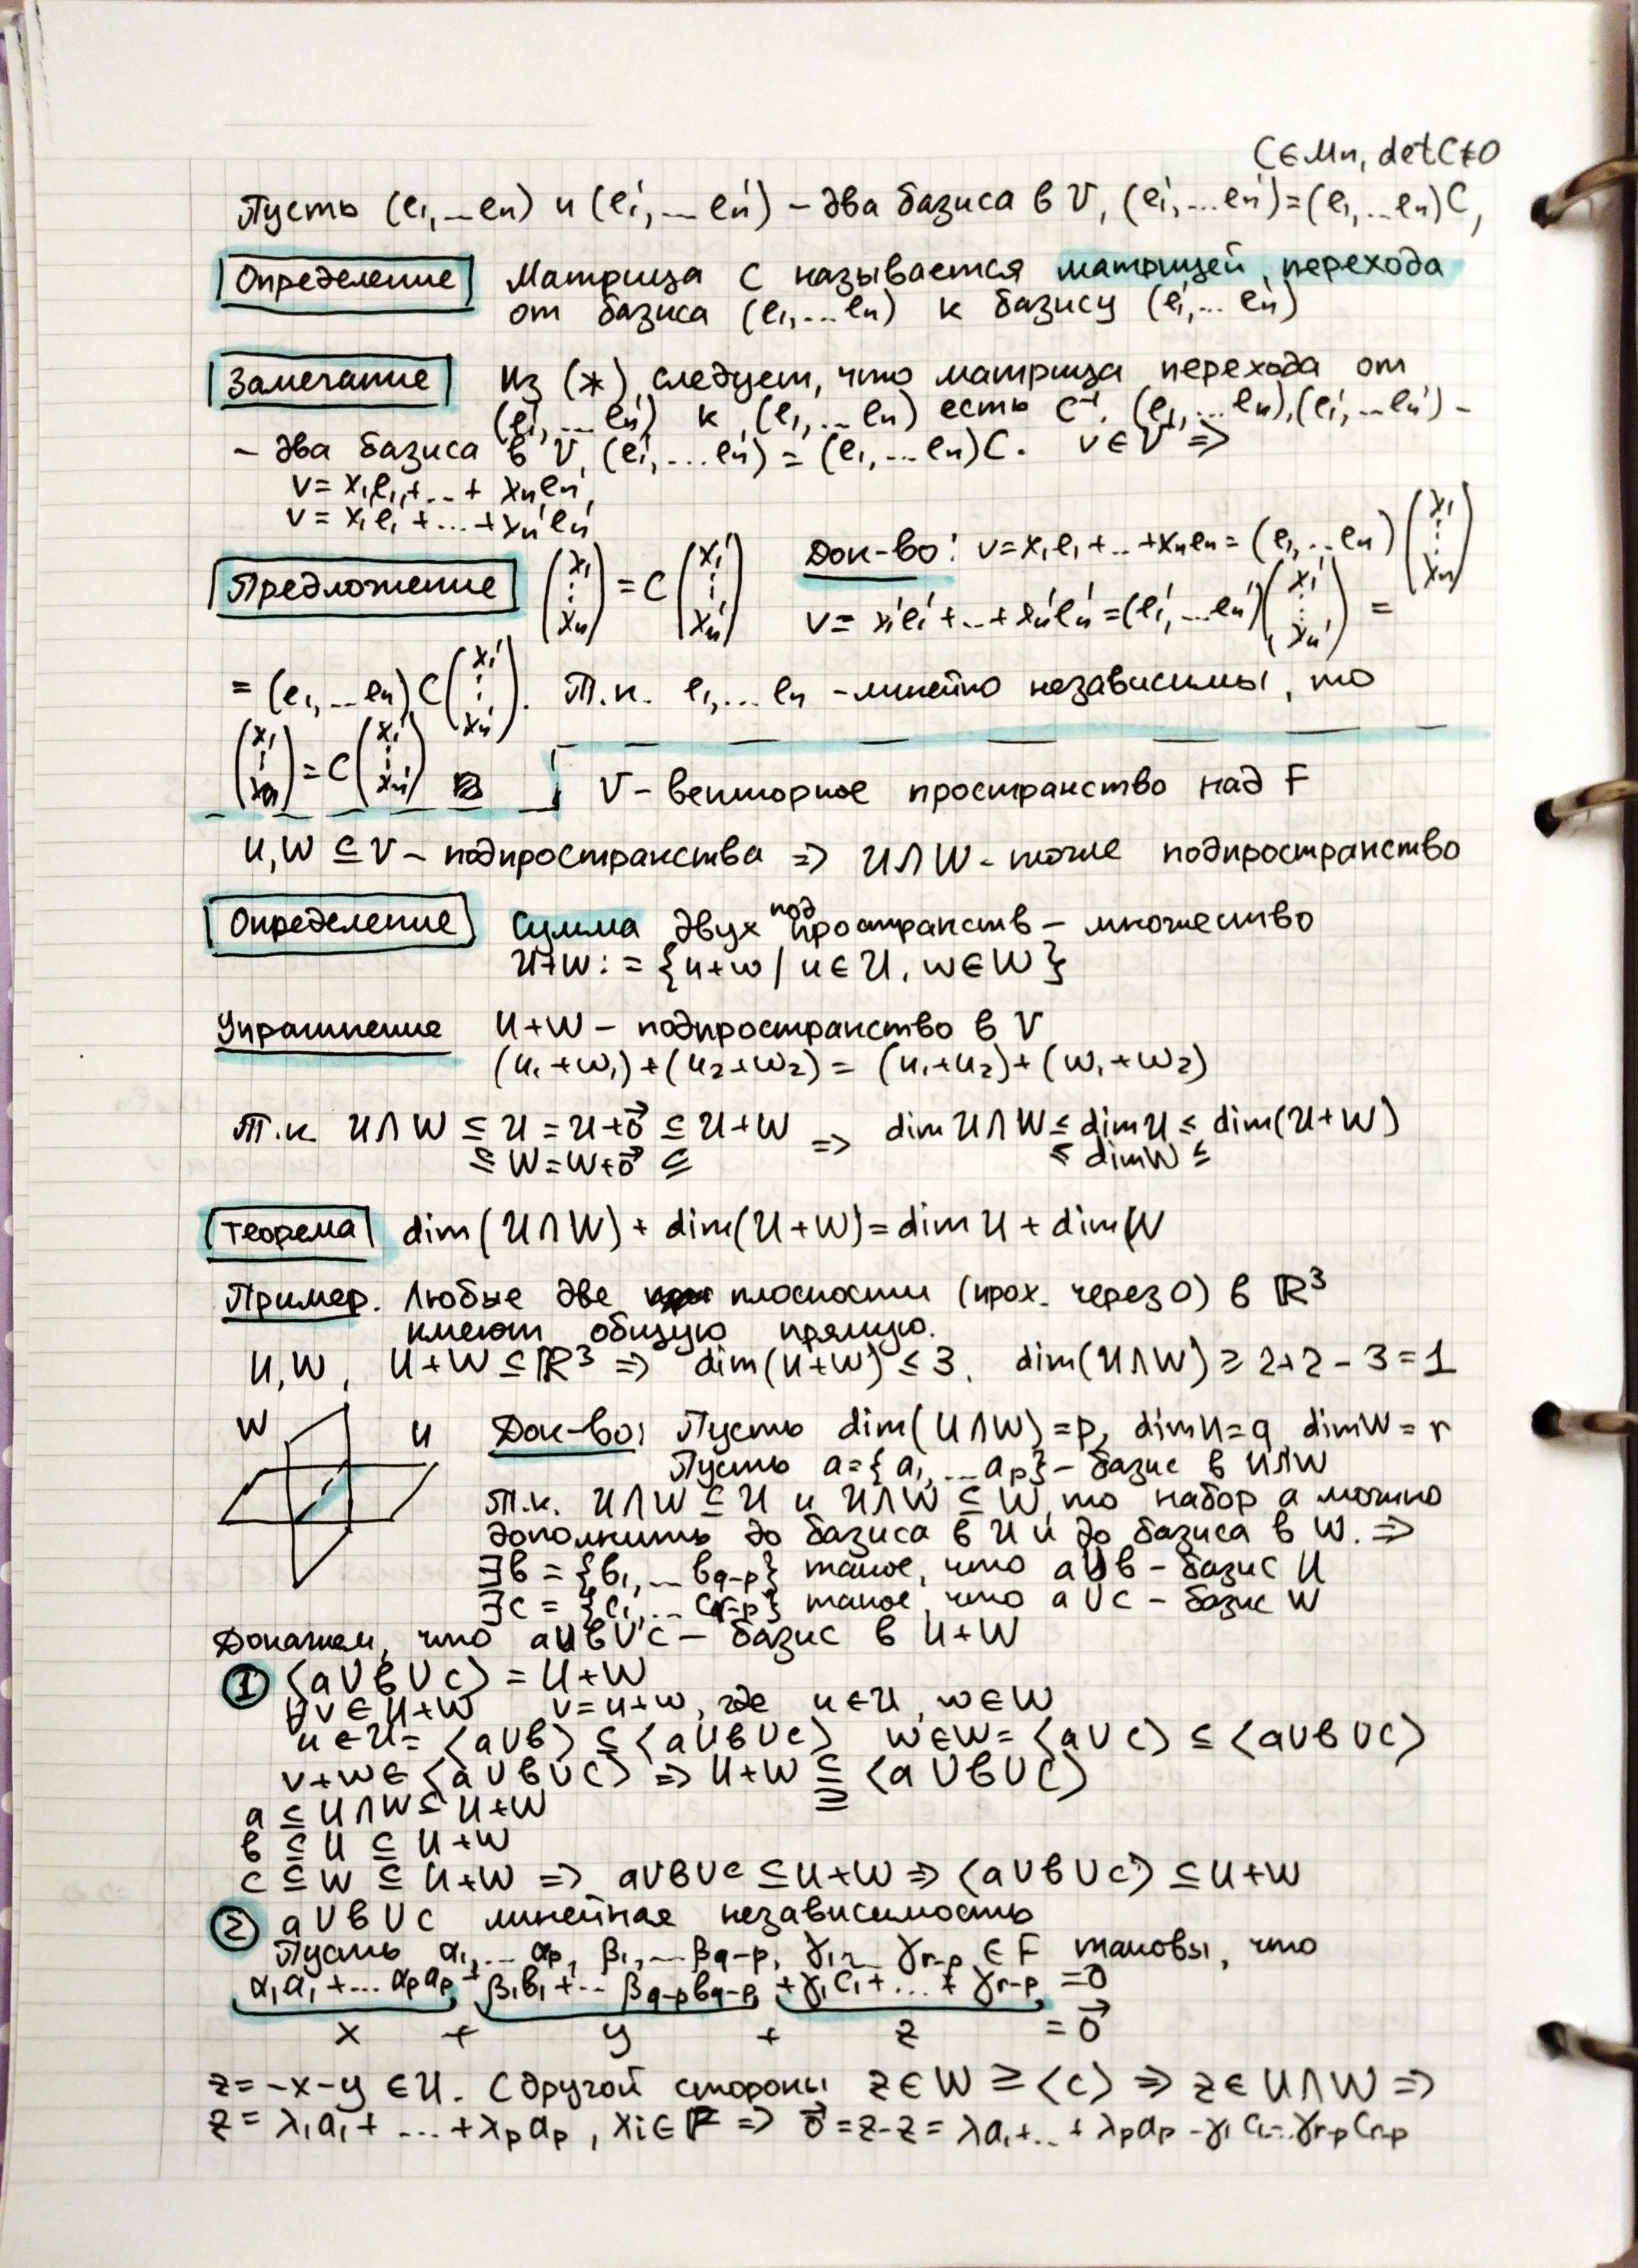 C∈Mn, detC≠0
Пусть (e₁,...en) и (e₁',...en') – два базиса в V, (e₁',...en')=(e₁,...en)C,
Определение Матрица C называется матрицей перехода
от базиса (e₁,...en) к базису (e₁',...en')
Замечание Из (*) следует, что матрица перехода от
(e₁',...en') к (e₁,...en) есть C⁻¹. (e₁,...en),(e₁',...en') –
– два базиса в V, (e₁',...en') = (e₁,...en)C. v∈V ⇒
v=x₁e₁+...+xnen,
v=x₁'e₁'+...+xn'en'
Предложение (x₁ ⋮ xn) = C (x₁' ⋮ xn') Док-во: v=x₁e₁+...+xnen=(e₁,...en)(x₁ ⋮ xn)
v= x₁'e₁'+...+xn'en'=(e₁',...en')(x₁' ⋮ xn') =
= (e₁,...en)C(x₁' ⋮ xn'). Т.к. e₁,...en – линейно независимы, то
(x₁ ⋮ xn)=C(x₁' ⋮ xn')
V – векторное пространство над F
U,W ⊆V – подпространства ⇒ U∩W – тоже подпространство
Определение Сумма двух подпространств – множество
U+W:={u+w | u∈U, w∈W}
Упражнение U+W – подпространство в V
(u₁+w₁)+(u₂+w₂) = (u₁+u₂)+(w₁+w₂)
Т.к. U∩W ⊆ U = U+0⃗ ⊆ U+W ⇒ dim U∩W ≤ dim U ≤ dim(U+W)
⊆ W=W+0⃗ ⊆ ≤ dimW ≤
Теорема dim(U∩W) + dim(U+W)=dim U + dim W
Пример. Любые две плоскости (прох. через 0) в ℝ³
имеют общую прямую.
U,W, U+W⊆ℝ³ ⇒ dim(U+W) ≤ 3. dim(U∩W) ≥ 2+2-3=1
W U Док-во: Пусть dim(U∩W)=p, dimU=q, dimW=r
Пусть a={a₁,...ap} – базис в U∩W
Т.к. U∩W ⊆ U и U∩W ⊆ W, то набор a можно
дополнить до базиса в U и до базиса в W. ⇒
∃b = {b₁,...bq-p} такое, что a∪b – базис U
∃c = {c₁,...cr-p} такое, что a∪c – базис W
Докажем, что a∪b∪c – базис в U+W
① ⟨a∪b∪c⟩ = U+W
∀v∈U+W v=u+w, где u∈U, w∈W
u∈U= ⟨a∪b⟩ ⊆ ⟨a∪b∪c⟩ w∈W= ⟨a∪c⟩ ⊆ ⟨a∪b∪c⟩
v+w∈⟨a∪b∪c⟩ ⇒ U+W ⊆ ⟨a∪b∪c⟩
⊇
a ⊆ U∩W⊆ U+W
b ⊆ U ⊆ U+W
c ⊆ W ⊆ U+W ⇒ a∪b∪c ⊆U+W ⇒ ⟨a∪b∪c⟩ ⊆U+W
② a∪b∪c линейная независимость
Пусть α₁,...αp, β₁,...βq-p, γ₁,...γr-p ∈F таковы, что
α₁a₁+...αpap+β₁b₁+...βq-pbq-p+γ₁c₁+...+γr-p =0
x + y + z = 0⃗
z=-x-y ∈U. С другой стороны z∈W ⊇⟨c⟩ ⇒ z∈U∩W ⇒
z= λ₁a₁+ ...+λpap, λi∈F ⇒ 0⃗=z-z= λa₁+...+λpap -γ₁c₁-...γr-pcr-p